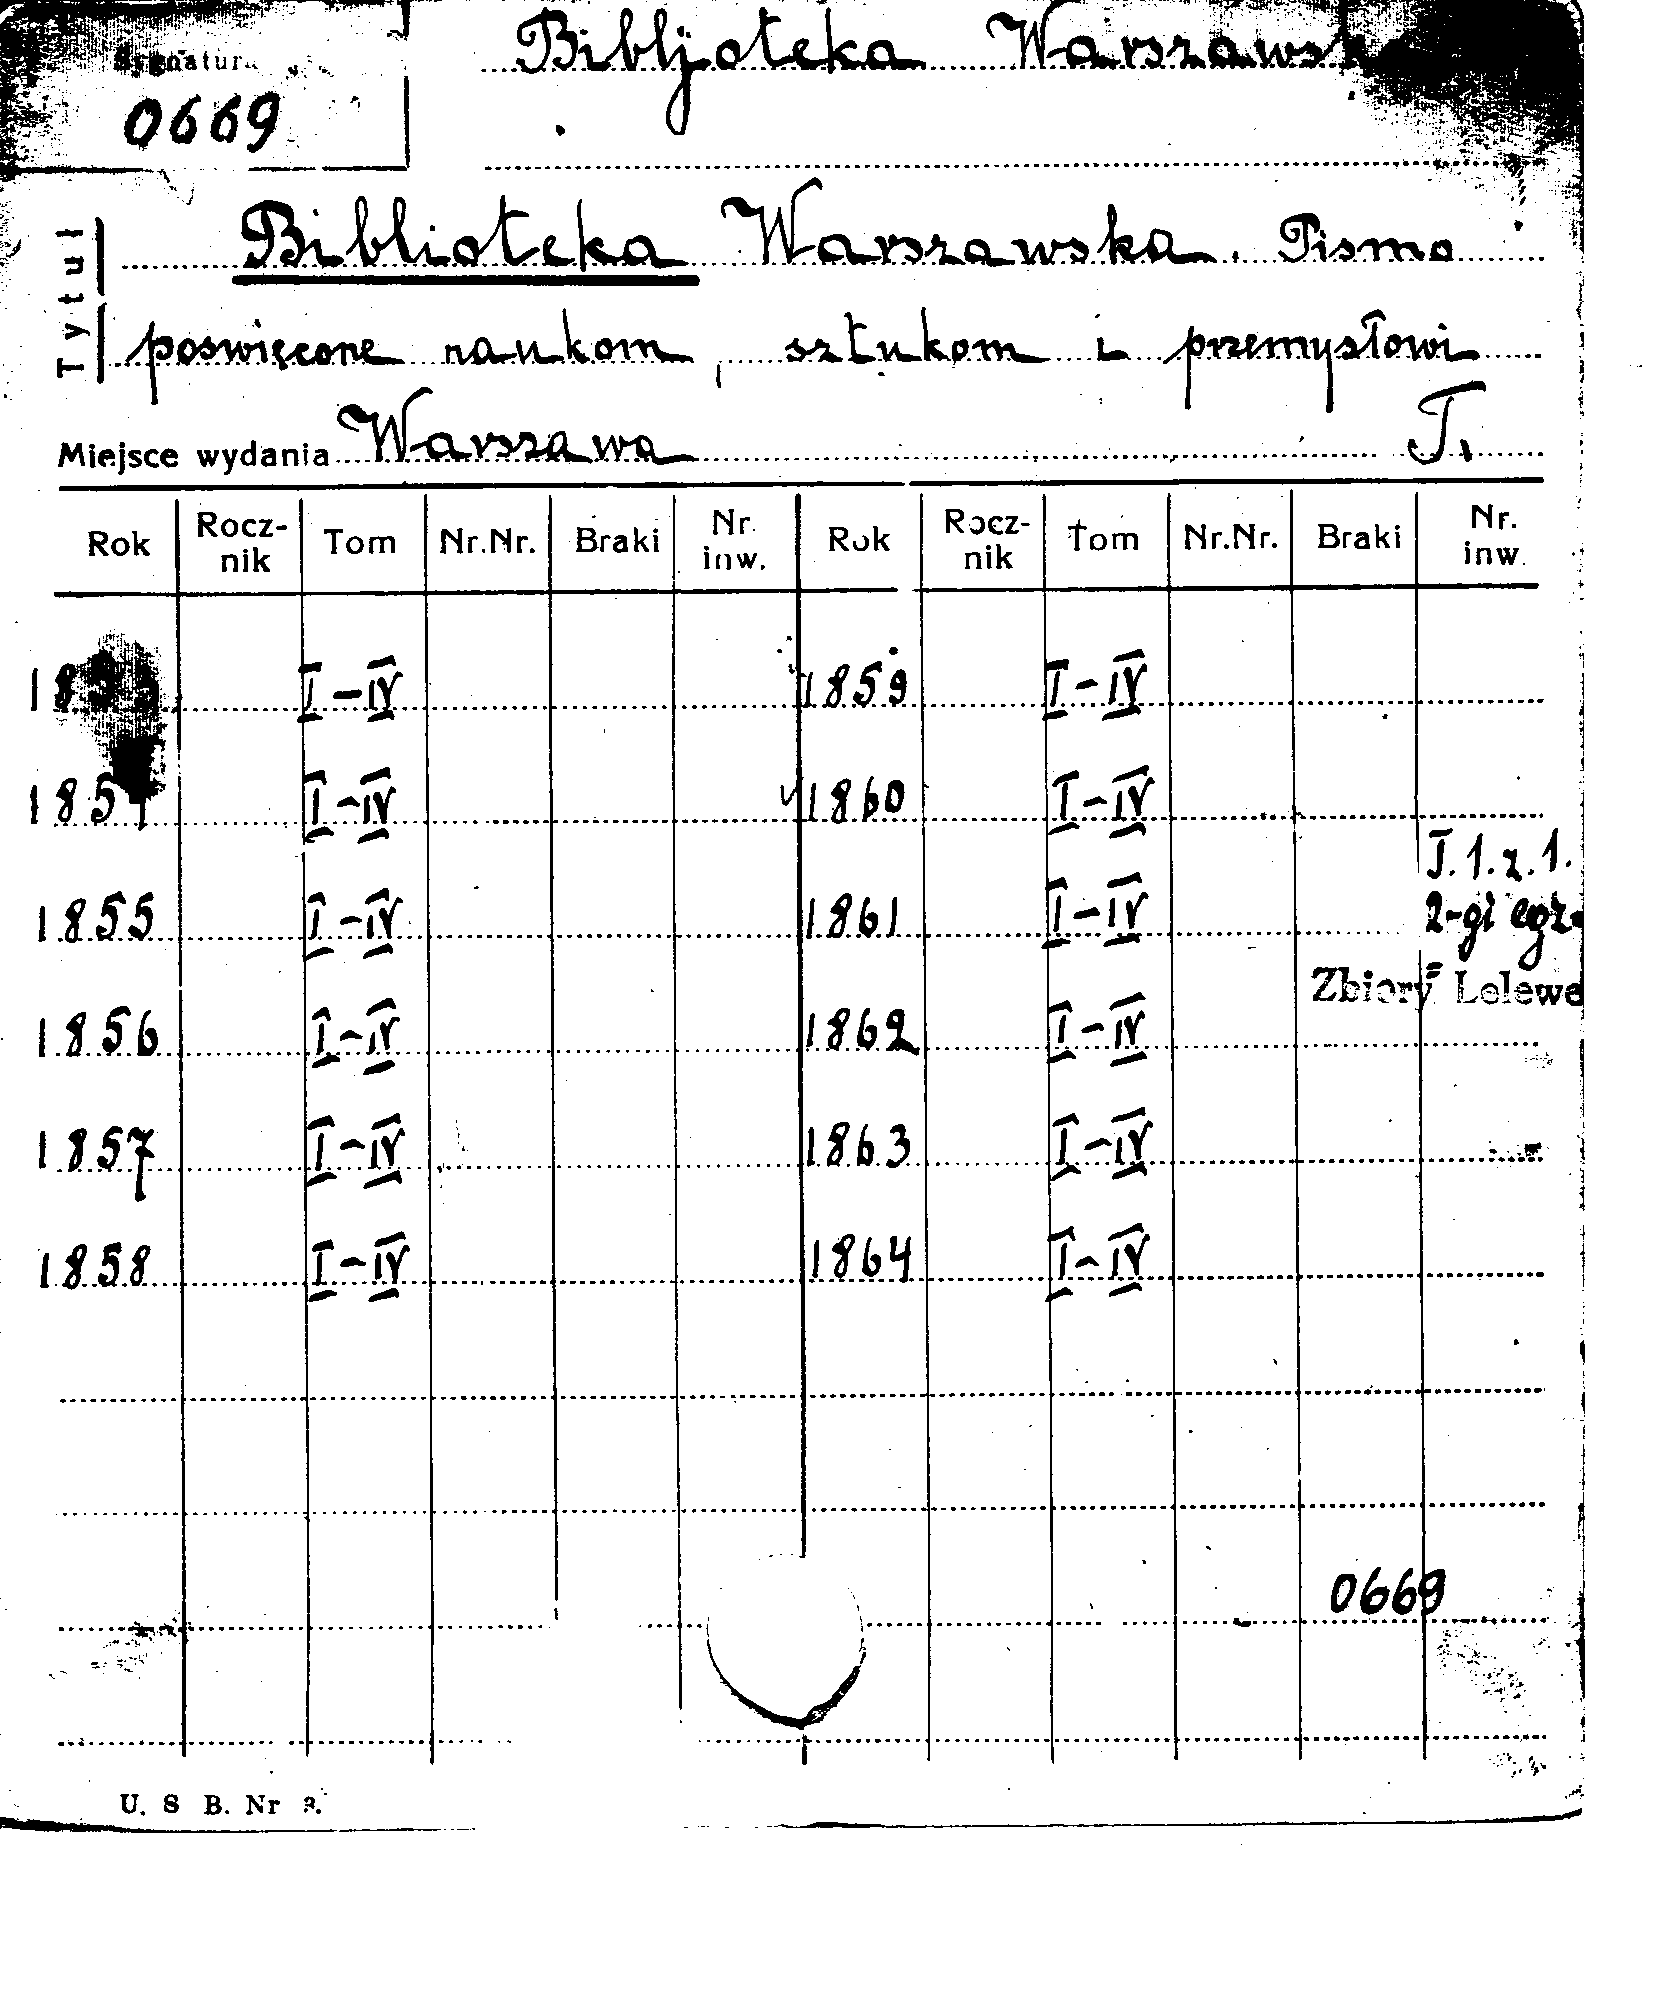 Sygnatura
0669
Bibljoteka Warszawsk
Tytuł
Biblioteka Warszawska. Pismo
poswięcone naukom, sztukom i przemysłowi
Miejsce wydania Warszawa T.
Rok Rocz-nik Tom Nr.Nr. Braki Nr. inw. Rok Rocz-nik Tom Nr.Nr. Braki Nr. inw.
I-IV 1859 I-IV
1854 I-IV 1860 I-IV
T.1.z.1.
1855 I-IV 1861 I-IV 2-gi egz.
Zbiory Lelewe
1856 I-IV 1862 I-IV
1857 I-IV 1863 I-IV
1858 I-IV 1864 I-IV
0669
U. S B. Nr